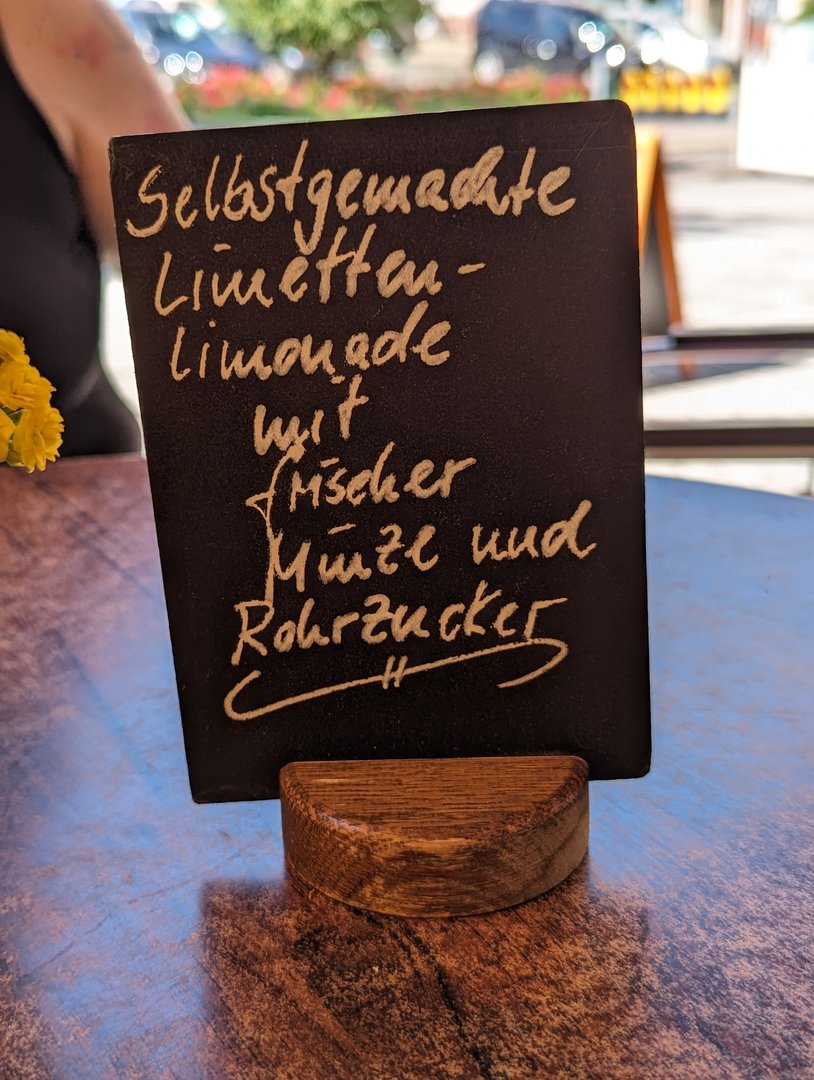 Selbstgemachte
Limetten-
Limonade
mit
frischer
Minze und
Rohrzucker